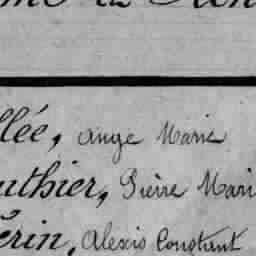 llée, Ange Marie
uthier, Pierre Mari
érin, Alexis Constant